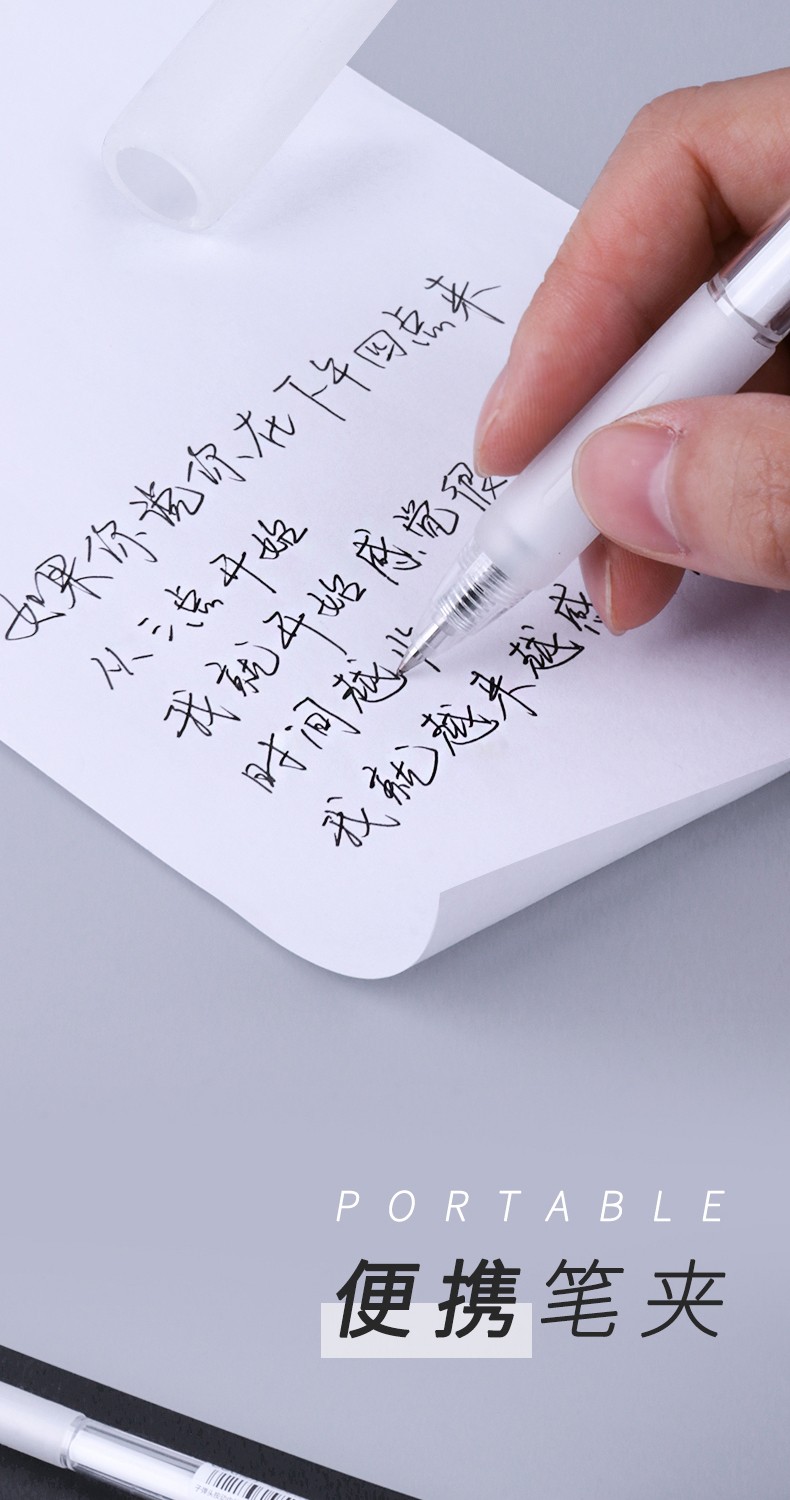 如果你说你在下午四点来
从三点开始
我就开始感觉很
时间越
我就越来越感
PORTABLE
便携笔夹